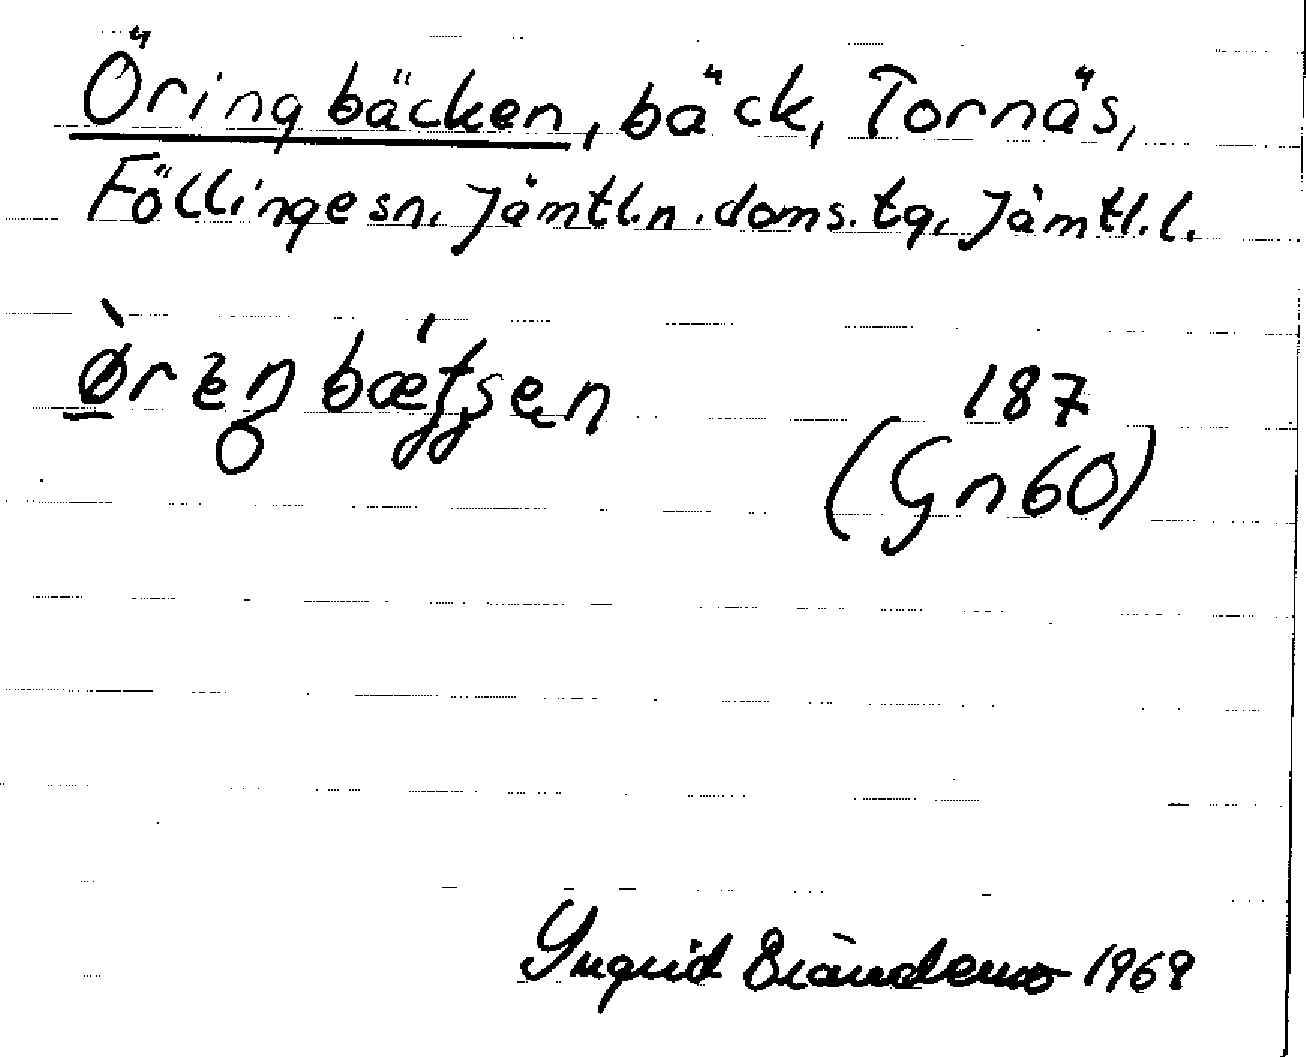 Öringbäcken, bäck, Tornäs,
Föllinge sn, Jämtl.n.doms.tg, Jämtl.l.
187
(Gn60)
Ingrid Brändemo 1969